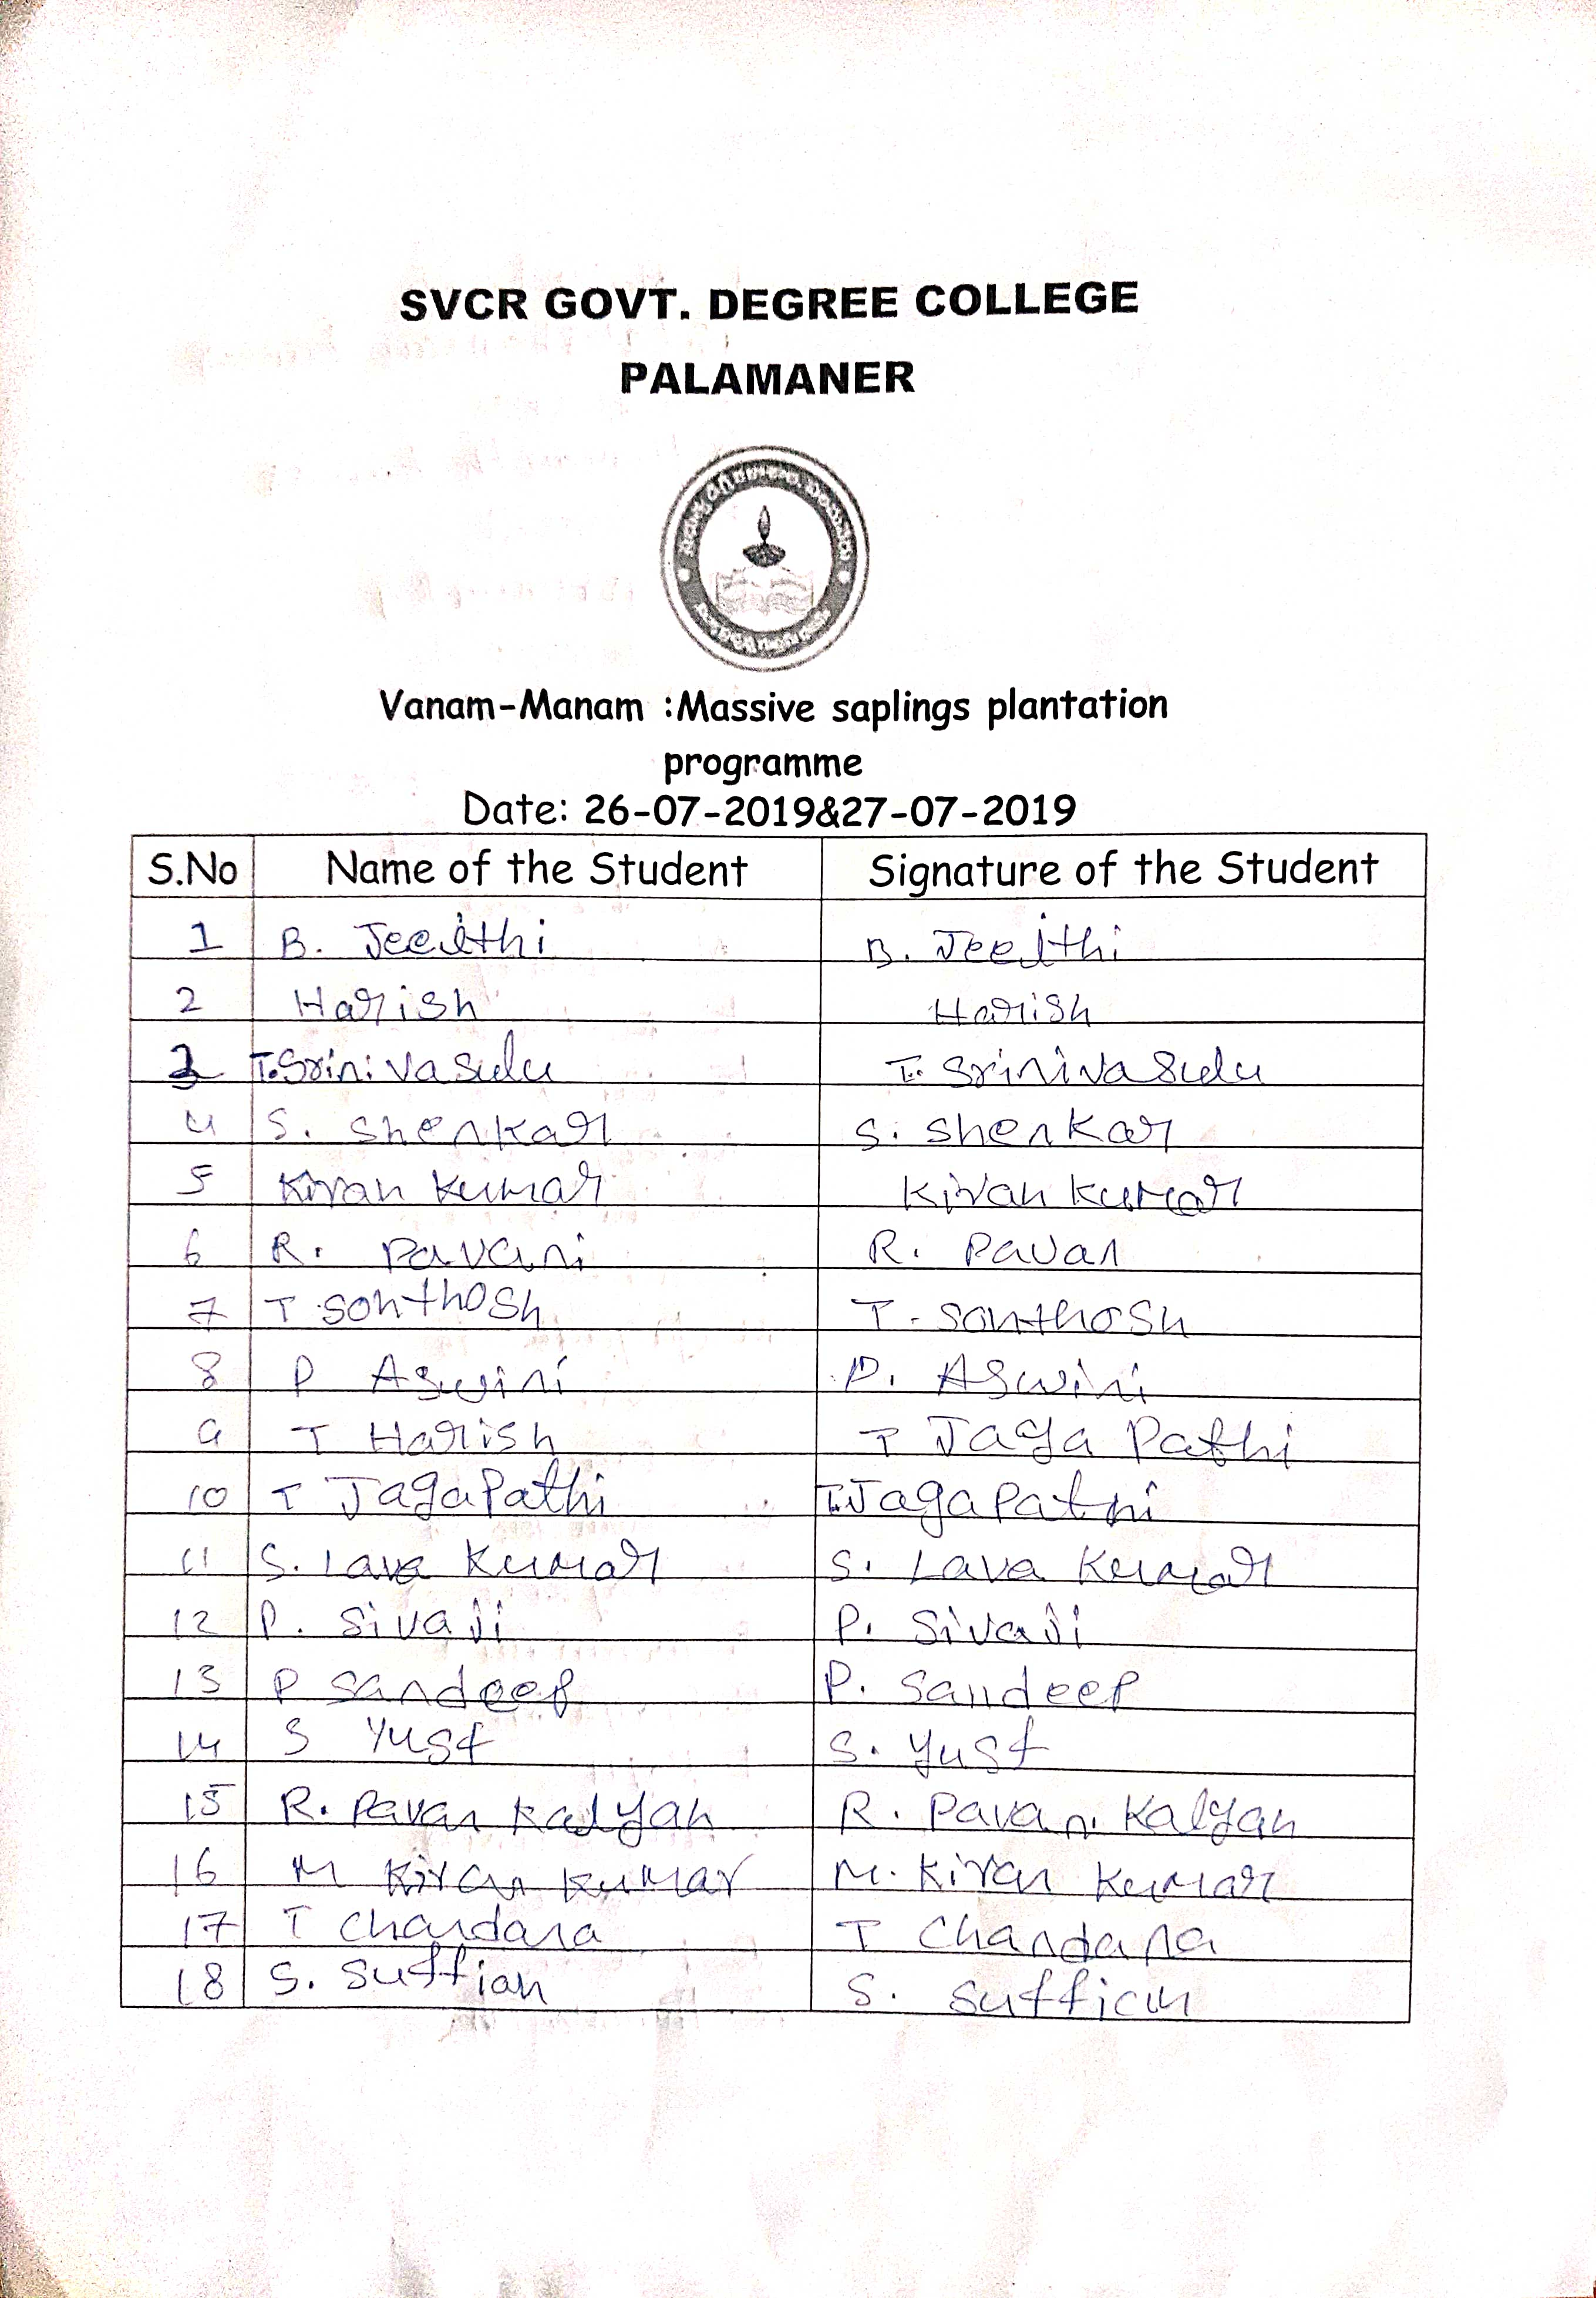 SVCR GOVT. DEGREE COLLEGE
PALAMANER
Vanam-Manam :Massive saplings plantation
programme
Date: 26-07-2019&27-07-2019
S.No Name of the Student Signature of the Student
1 B. Jeejthi B. Jeejthi
2 Harish Harish
3 T.Srinivasulu T. Srinivasulu
4 S. Shenkar S. Shenkar
5 Kiran Kumar Kiran Kumar
6 R. Pavani R. Pavan
7 T Sonthosh T. Sonthosh
8 P Aswini P. Aswini
9 T Harish T Jaga Pathi
10 T Jagapathi T.Jagapathi
11 S. Lava Kumar S. Lava Kumar
12 P. Sivaji P. Sivaji
13 P Sandeep P. Sandeep
14 S Yusf S. Yusf
15 R. Pavan Kalyan R. Pavan. Kalyan
16 M Kiran Kumar M. Kiran Kumar
17 T Chandana T Chandana
18 S. Suffian S. Suffian